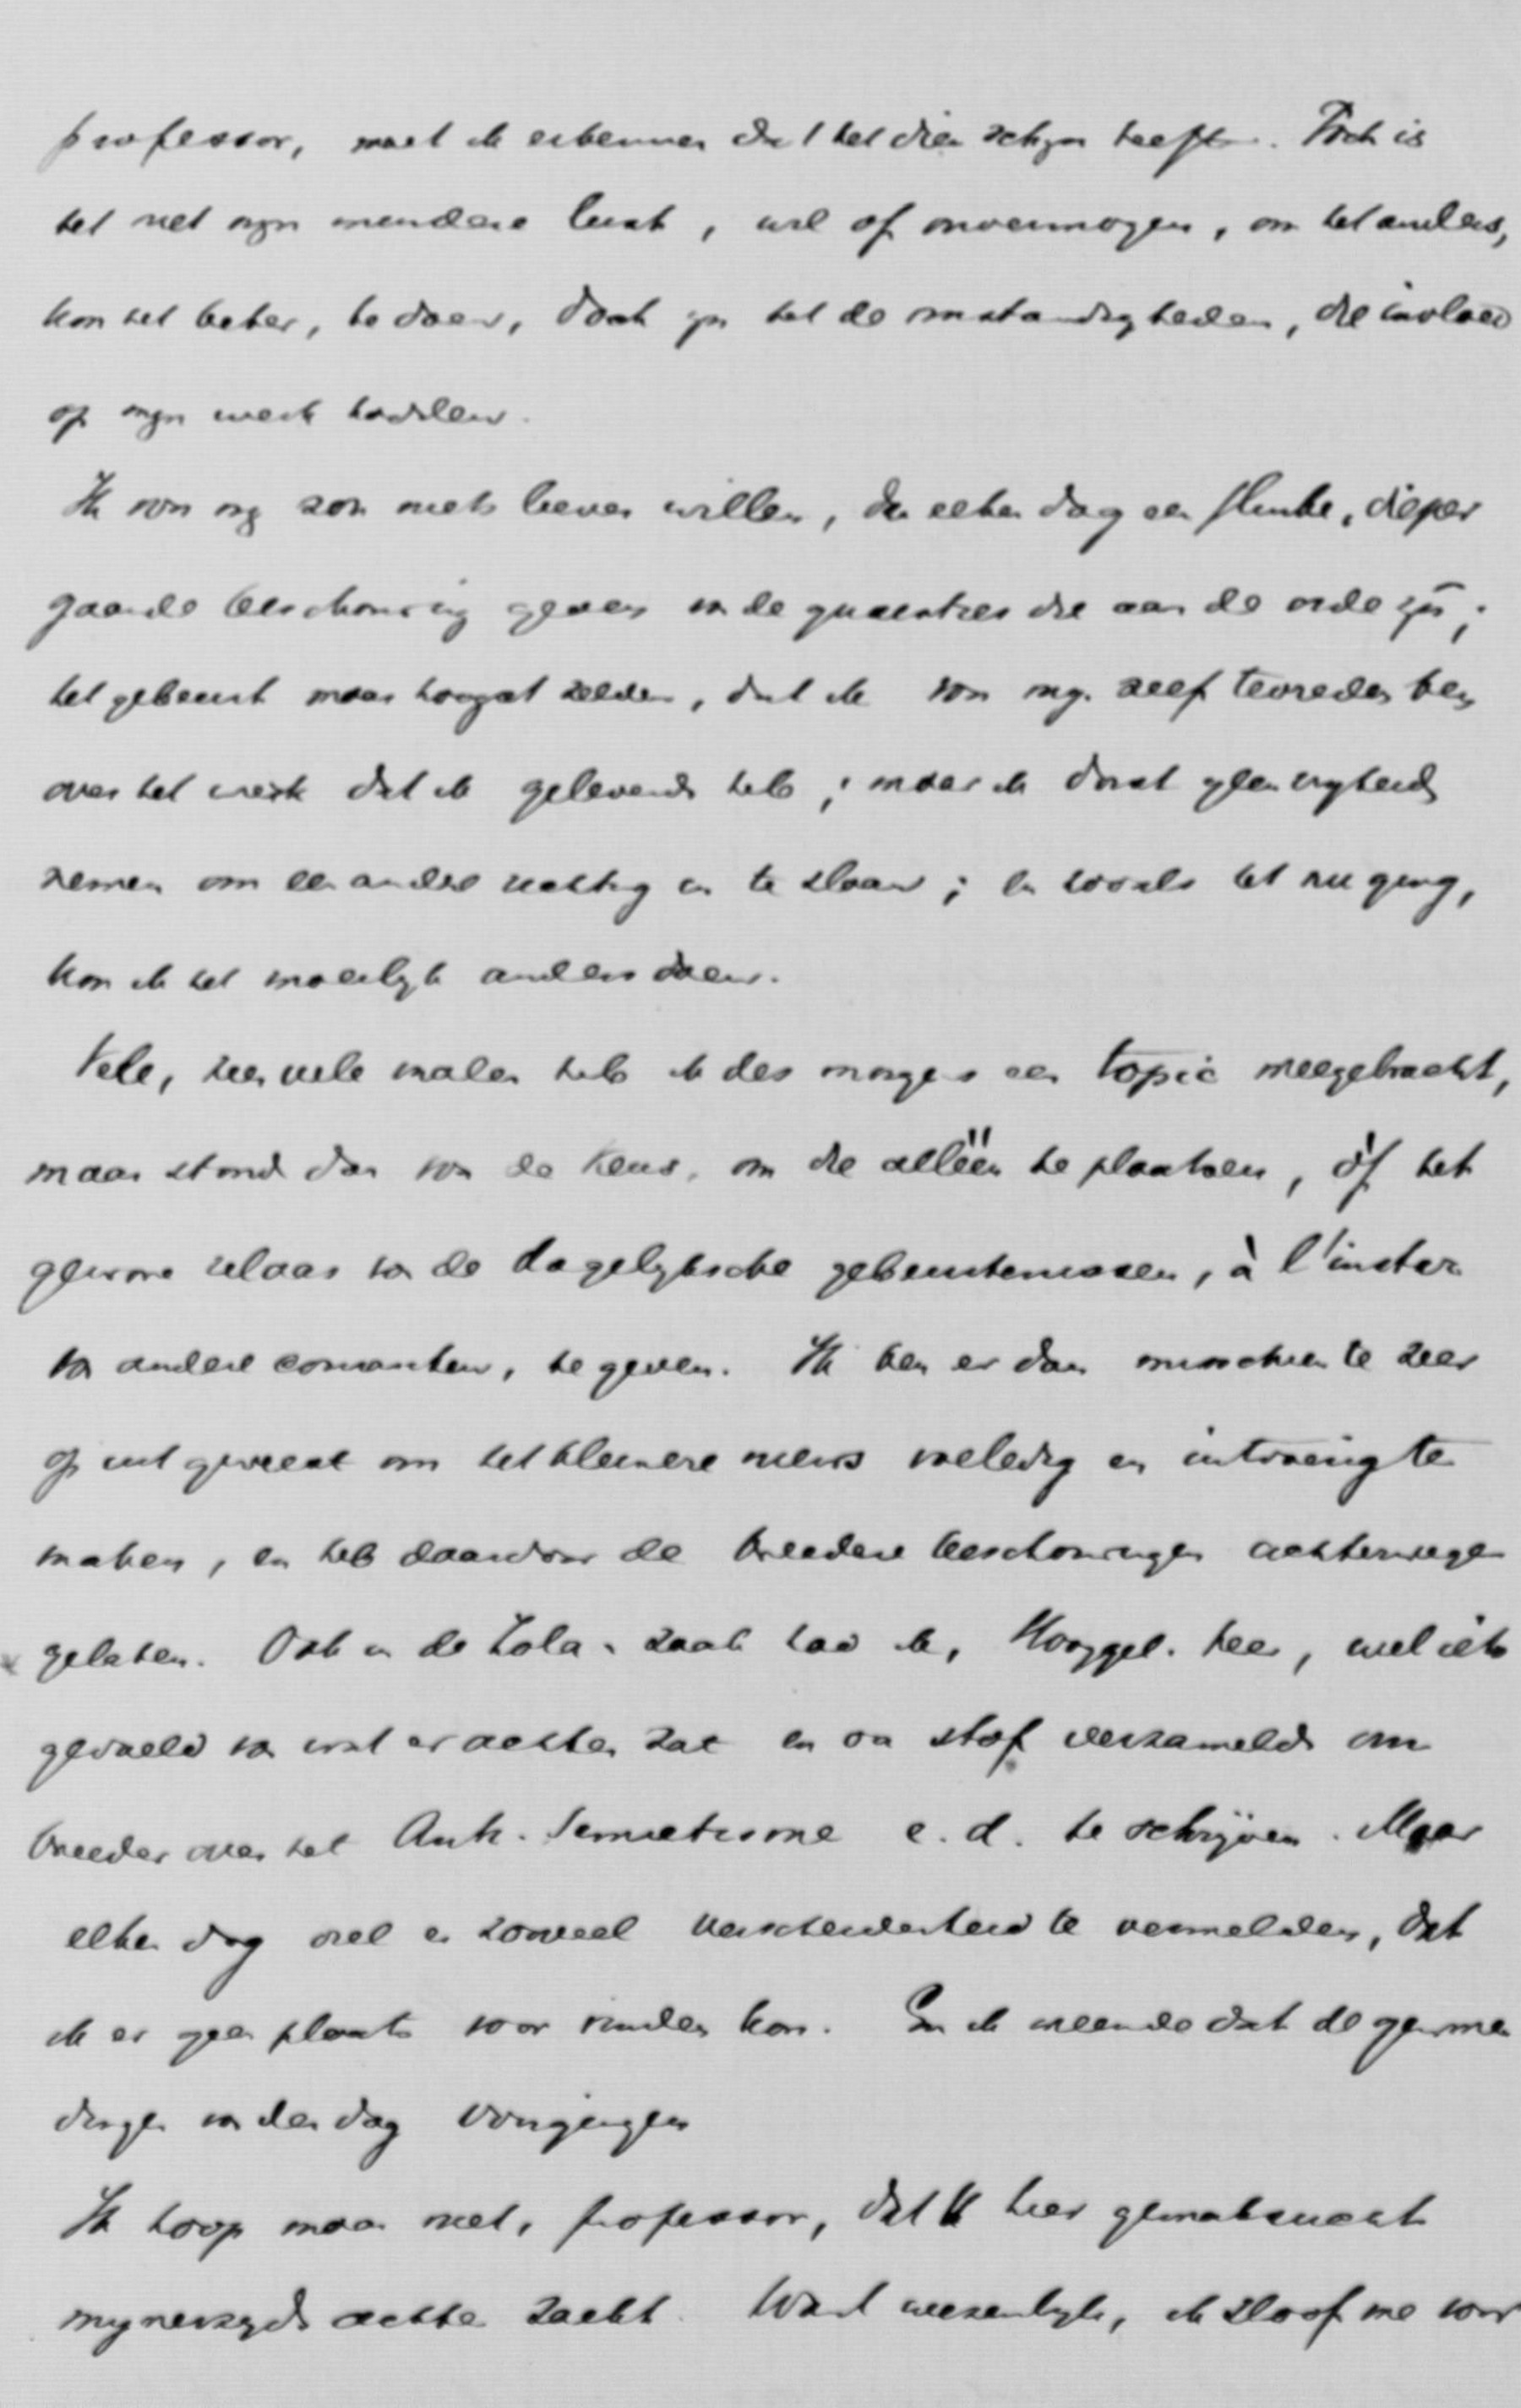 professor, moet ik erkennen dat het dien schijn heeft. Toch is
het niet mijn mindere lust, wil of onvermogen, om het anders,
kon het beter, te doen, doch zijn het de omstandigheden, die invloed
op mijn werk hadden.
Ik voor mij zou niets liever willen, dan elken dag een flinke, dieper
gaande beschouwing geven van de quaesties die aan de orde zijn;
het gebeurt maar hoogst zelden, dat ik voor mij zelf tevreden ben
over het werk dat ik geleverd heb; maar ik dorst geen vrijheid
nemen om een andere richting in te slaan; en zooals het nu ging,
kon ik het moeilijk anders doen.
Vele, zeer vele malen heb ik des morgens een topic meegebracht,
maar stond dan voor de keus, om die alléén te plaatsen, òf het
gewone relaas van de dagelijksche gebeurtenissen, à l'instar
van andere couranten, te geven. Ik ben er dan misschien te zeer
op uit geweest om het kleinere nieuws volledig en te
maken, en heb daardoor de breedere beschouwingen achterwege
gelaten. Ook in de Zola-zaak had ik, Hooggel. heer, wel iets
gevoeld van wat er achter zat en stof verzameld om
breeder over het Anti-Semietisme e.d. te schrijven. Maar
elken dag viel er zooveel verscheidenheid te vermelden, dat
ik er geen plaats voor vinden kon. En ik meende dat de gewone
dingen van den dag voorgingen
Ik hoop maar niet, professor, dat U hier gemakzucht
mijnerzijds achter zoekt. Want wezenlijk, ik sloof me voor